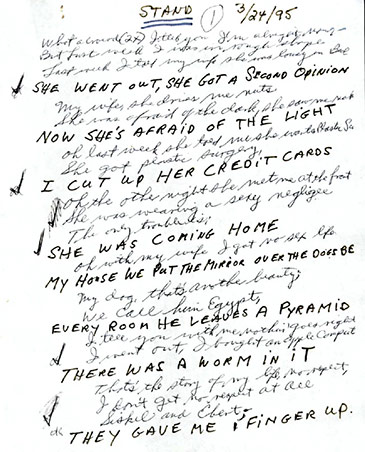 STAND ① 3/24/95
What a crowd (2x) I tell you I'm always wrong -
But last week I was in rough shape
Last week I told my wife she was lousy in Bed
SHE WENT OUT, SHE GOT A SECOND OPINION
My wife, she drives me nuts
She was afraid of the dark, she saw me nude
NOW SHE'S AFRAID OF THE LIGHT
oh last week she told me she wants Plastic Su
She got plastic surgery,
I CUT UP HER CREDIT CARDS
oh the other night she met me at the front
She was wearing a sexy negligee
The only trouble is;
SHE WAS COMING HOME
oh with my wife I got no sex life
MY HOUSE WE PUT THE MIRROR OVER THE DOGS BE
My dog, that's another beauty;
We call him Egypt,
EVERY ROOM HE LEAVES A PYRAMID
I tell you with me nothing goes right
I went out, I bought an Apple Comput
THERE WAS A WORM IN IT
That's the story of my life, no respect,
I don't get no respect at all
Siskel and Ebert -
THEY GAVE ME 1 FINGER UP.